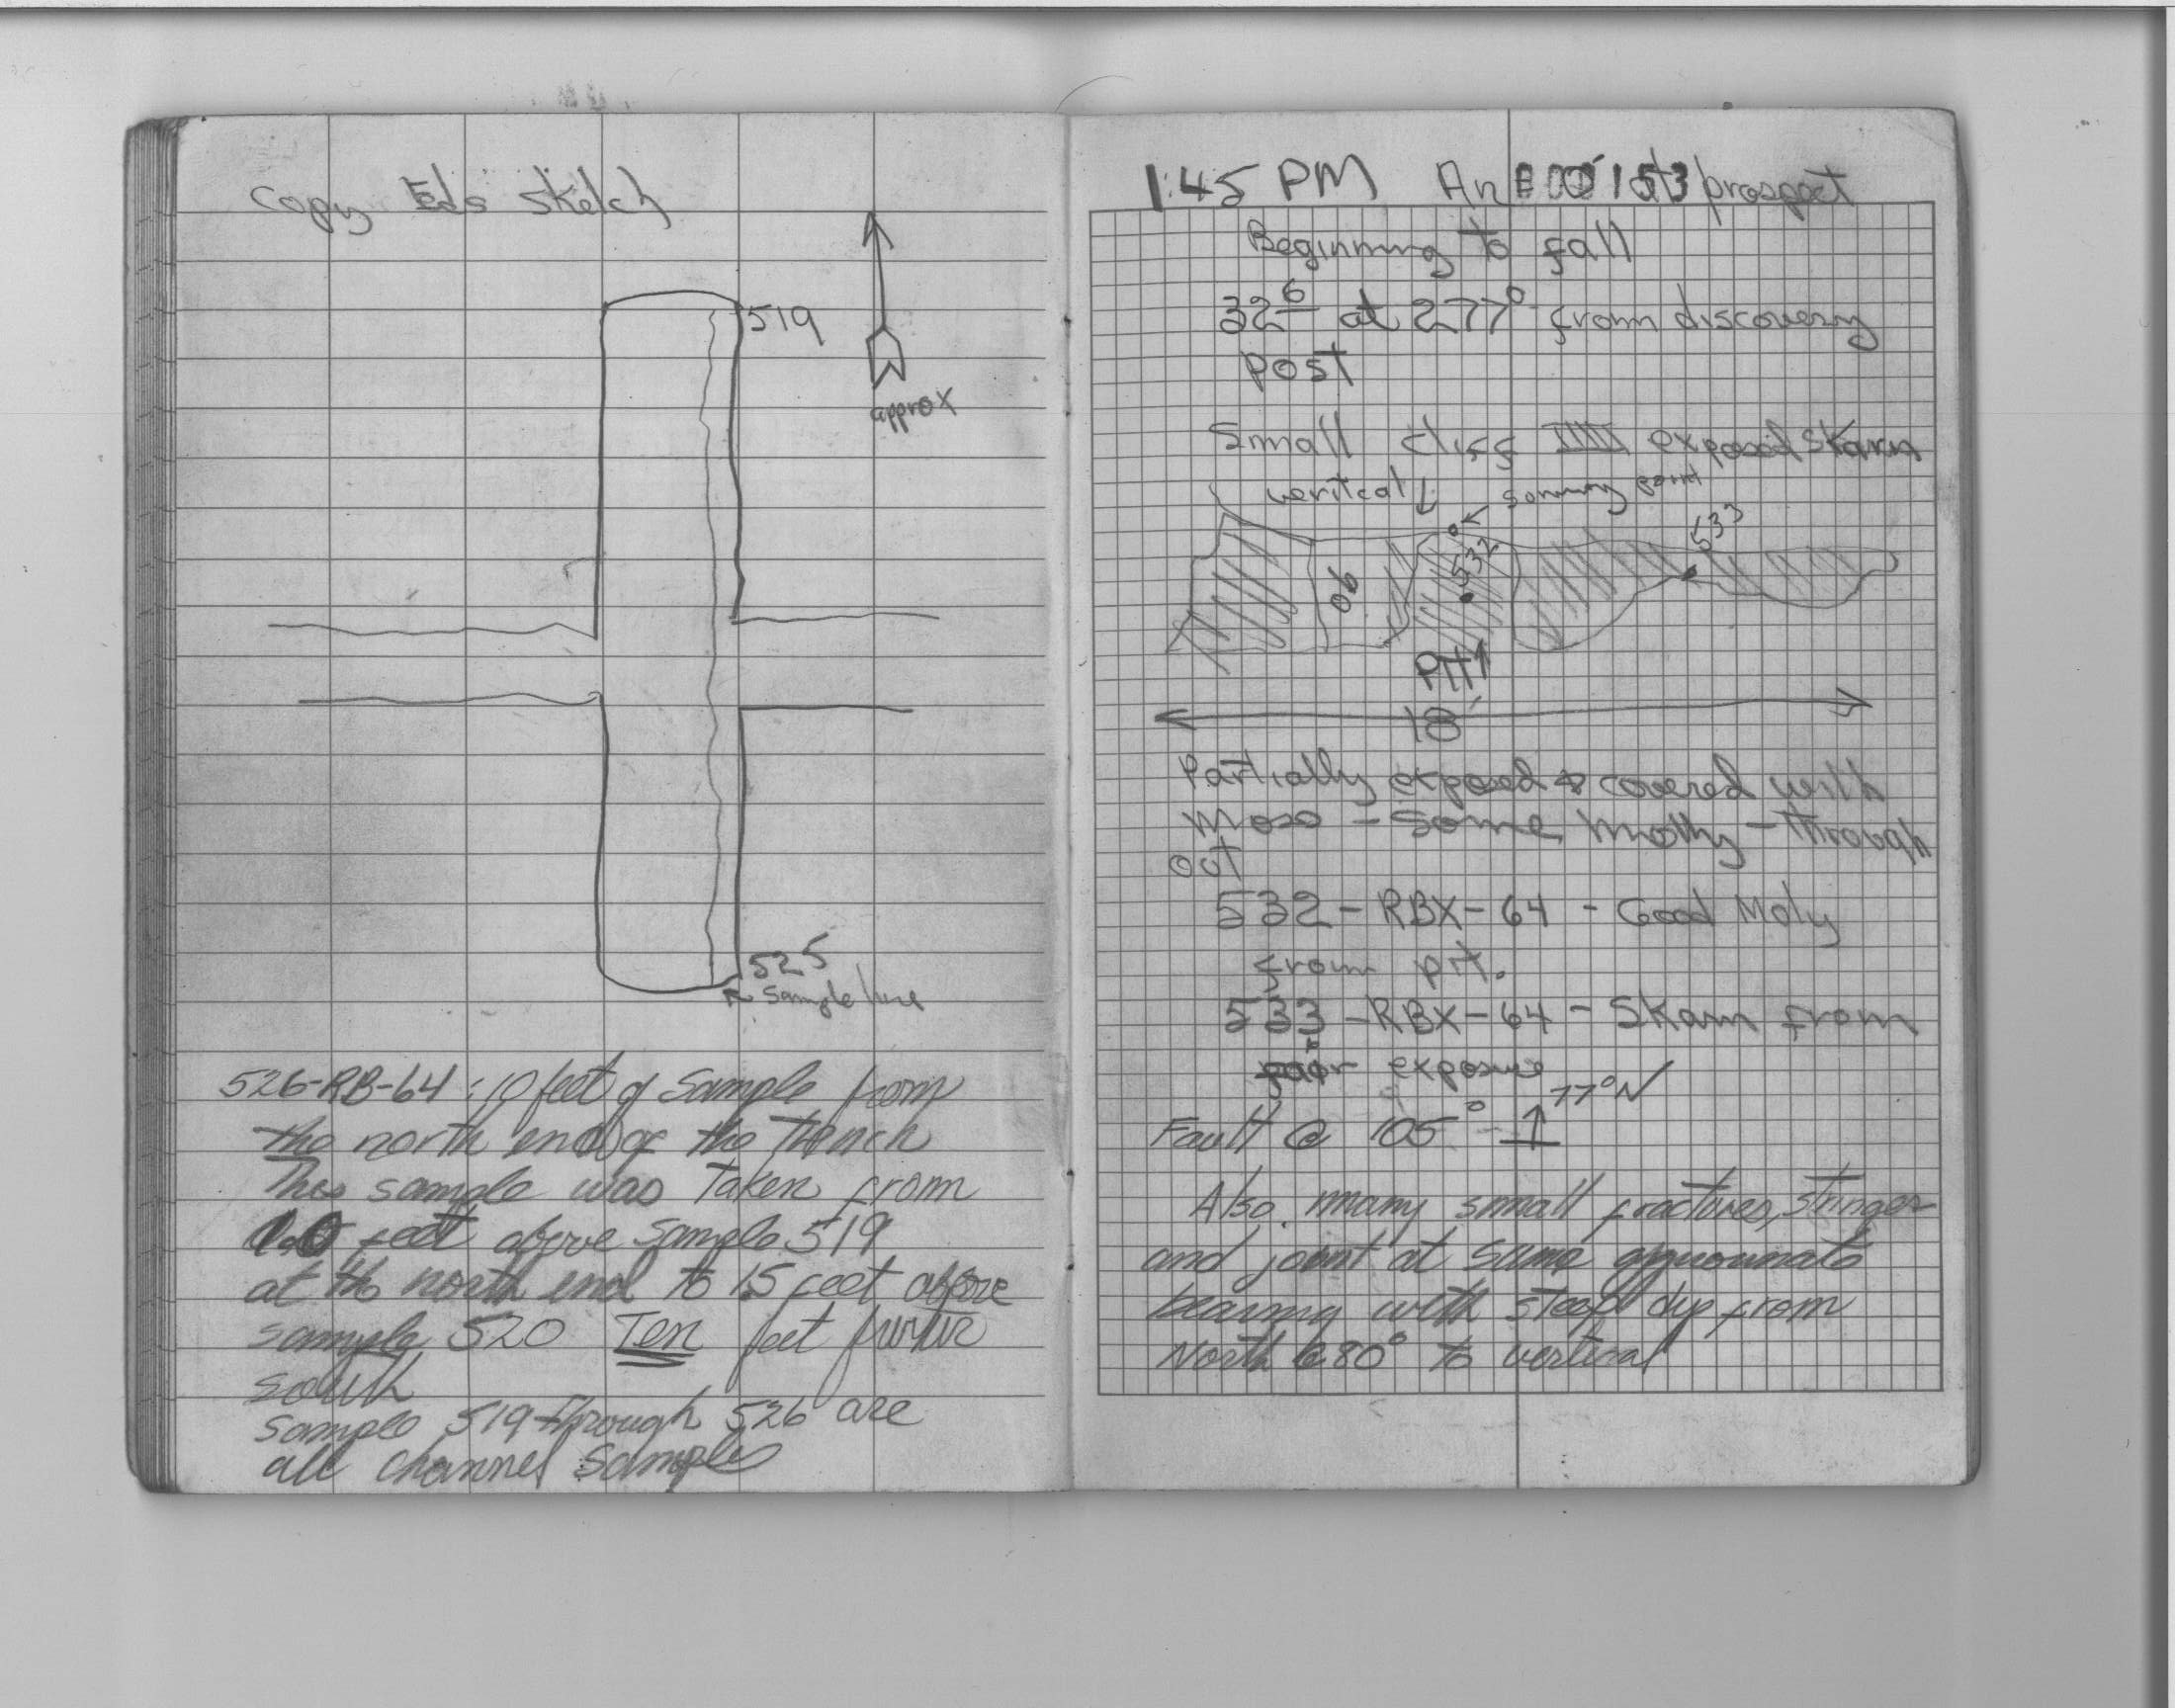 Copy Eds Sketch
519
approx
525
Sample line
526-RB-64 : 10 feet of Sample from
the north end of the Trench
This sample was Taken from
1.0 feet above Sample 519
at the north end to 1.5 feet above
sample 520 Ten feet
South
Sample 519 through 526 are
all channel Sample
1:45 PM at prospect
E 00153
Beginning to fall
32 6 at 277° from discovery
post
Small cliff exposed Skarn
vertical
point
532
533
OB
Pit
18'
Partially exposed & covered with
Moss - Some Molly - Through
out
532 - RBX - 64 - Good Moly
from pit.
533 - RBX - 64 - Skarn from
poor exposure
Fault @ 105° 77° N
Also, many small fractures, stringer
and joint at same approximate
bearing with steep dip from
North @ 80° to vertical